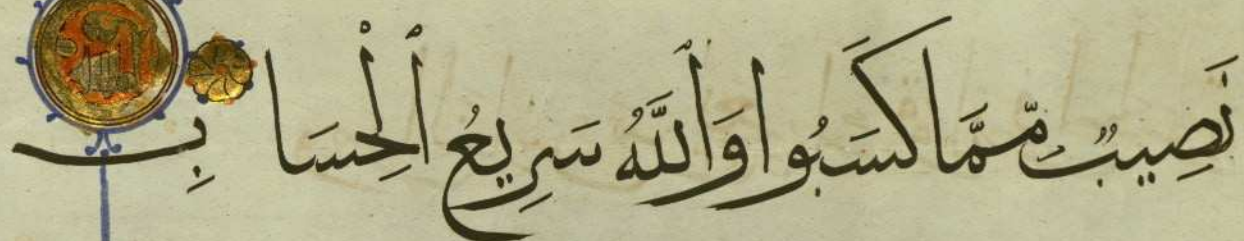 نَصِيبٌ مِّمَّا كَسَبُوا وَٱللَّهُ سَرِيعُ ٱلْحِسَابِ